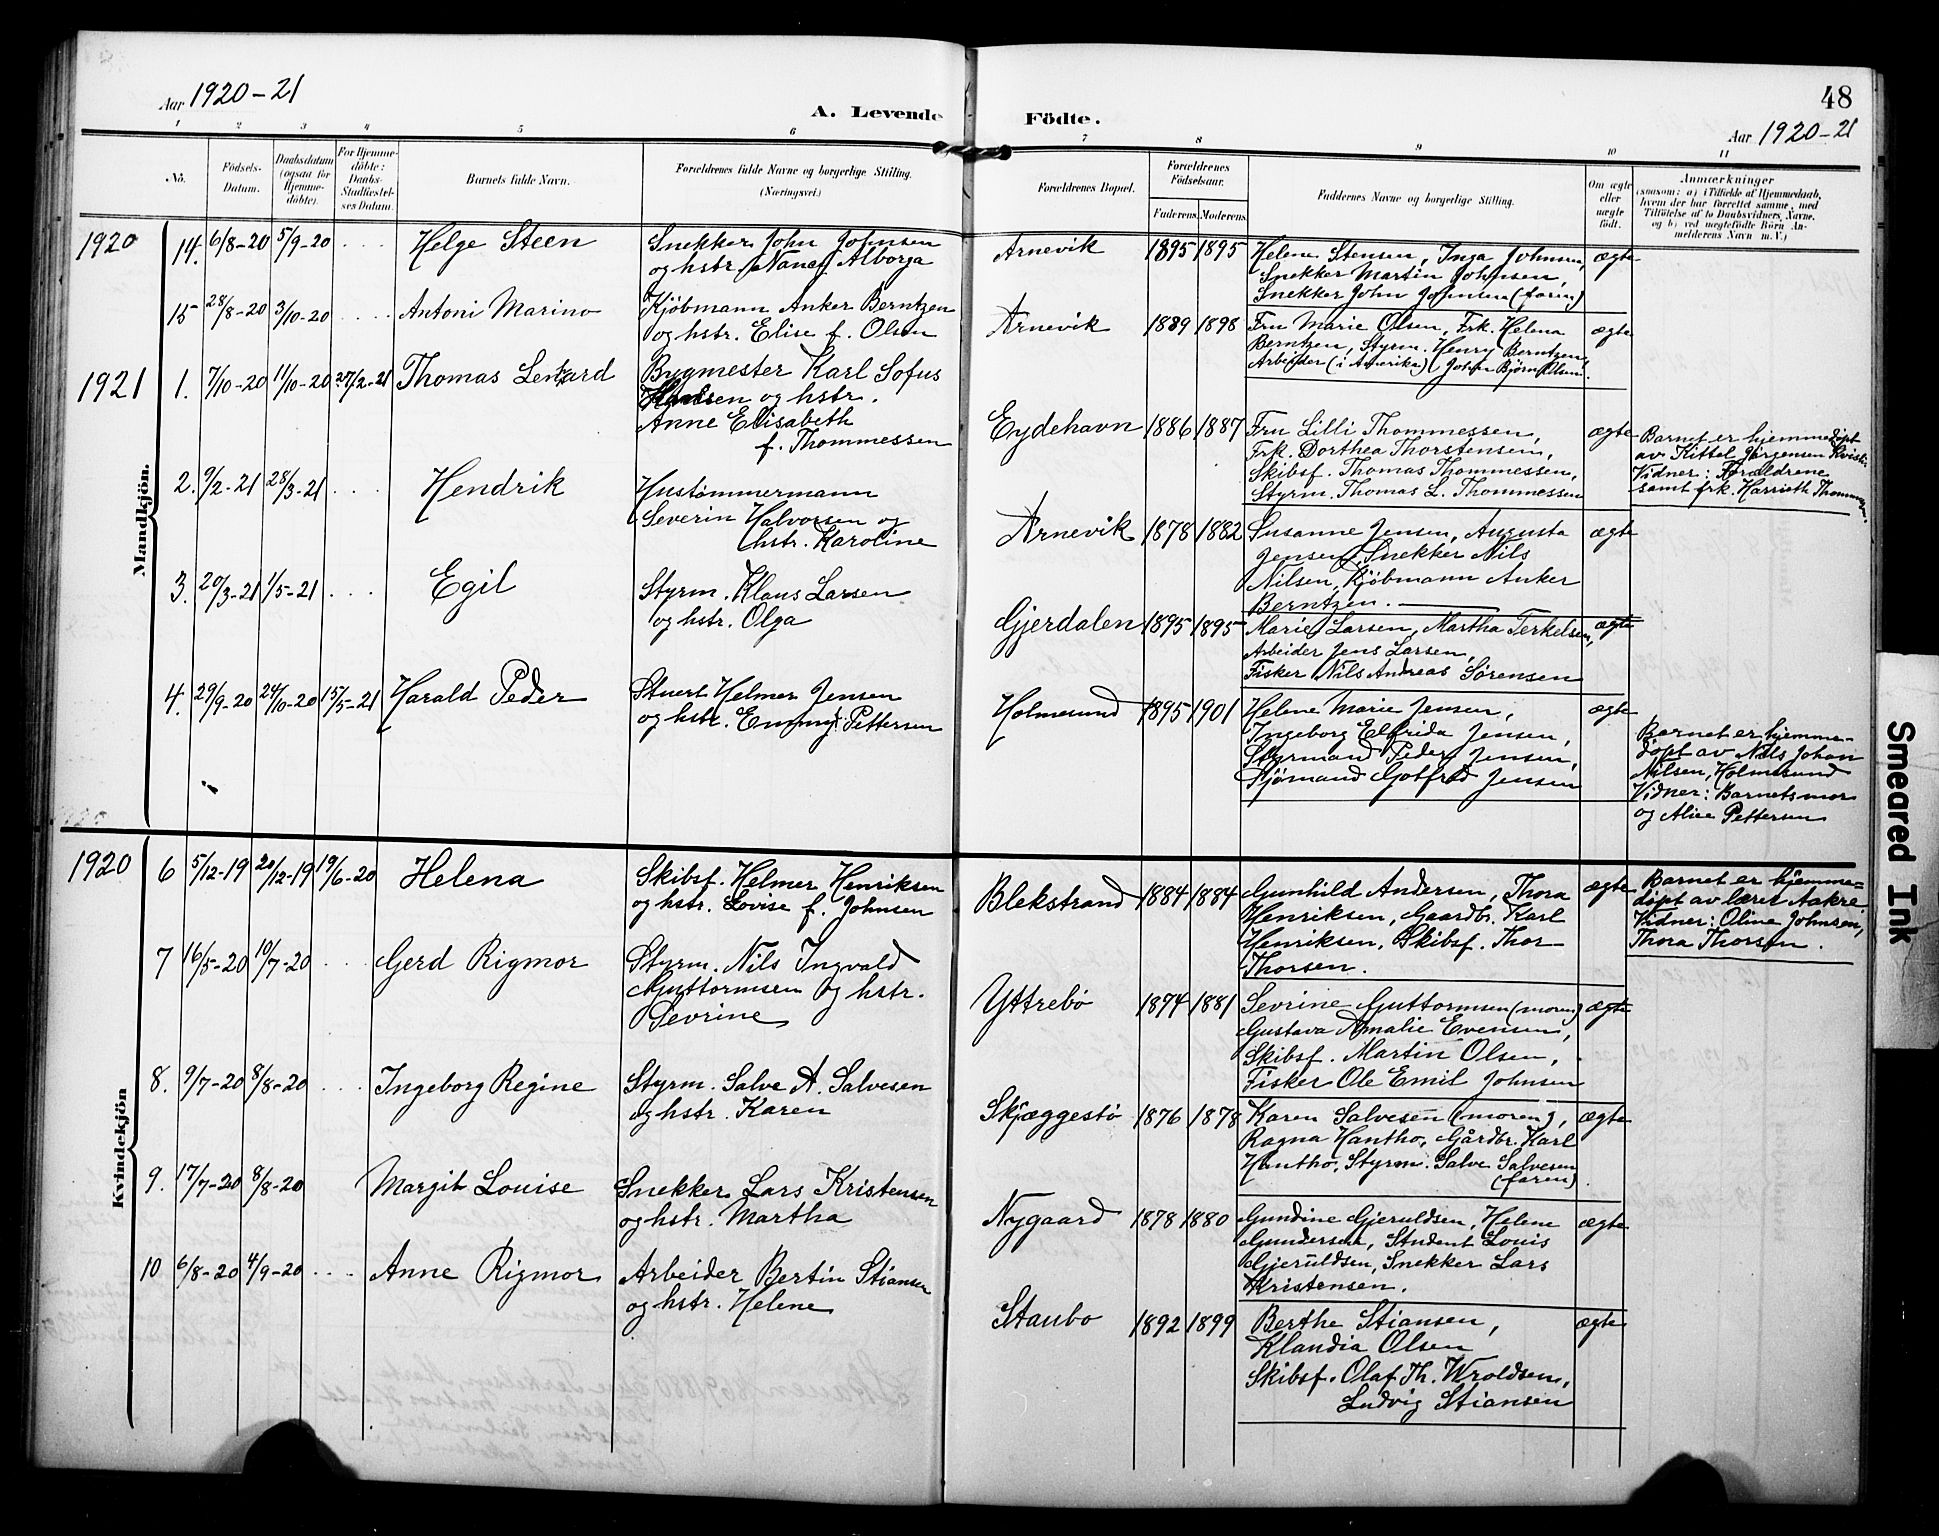 Aar 1920-21
A. Levende Födte.
48
Aar 1920-21
1 2 3 4 5 6 7 8 9 10 11
No.
Födsels-Datum.
Daabsdatum (ogsaa for Hjemmedöbte).
For Hjemmedöbte: Daabs-Stadfæstelses Datum.
Barnets fulde Navn.
Forældrenes fulde Navne og borgerlige Stilling. (Næringsvei.)
Forældrenes Bopæl.
Forældrenes Födselsaar.
Faderens. Moderens.
Faddernes Navne og borgerlig Stilling.
Om ægte eller uægte födt.
Anmærkninger
(saasom: a) i Tilfælde af Hjemmedaab,
hvem der har forrettet samme, med
Tilföielse af to Daabsvidners Navne.
og b) ved uægtefödte Börn An-
melderens Navn m. V.)
Mandkjön.
1920 14. 6/8-20 5/9-20 .... Helge Steen
Snekker John Johnsen
og hstr. Nancy Alborga
Arnevik 1895 1895
Helene Stensen, Inga Johnsen,
Snekker Martin Johnsen,
Snekker John Johnsen (faren)
ægte
15 28/8-20 3/10-20 .... Antoni Marino
Kjöbmann Anker Berntzen
og hstr. Elise f. Olsen
Arnevik 1889 1898
Fru Marie Olsen, Frk. Helna
Berntzen, Styrm. Henry Berntzen,
Arbeider (i Amerika) John Bjørn Olsen.
ægte
1921 1. 7/10-20 11/10-20 27/2-21 Thomas Lenhard
Bygmester Karl Sofus
og hstr.
Anne Elisabeth
f. Thommessen
Eydehavn 1886 1887
Fru Lilli Thommessen,
Frk. Dorthea Thorstensen,
Skibsf. Thomas Thommessen,
Styrm. Thomas L. Thommessen
ægte
Barnet er hjemmedøpt
av Kittel Jörgensen Kvist.
Vidner: Forældrene
samt frk. Harrieth Thommessen.
2. 9/2-21 28/3-21 .... Hendrik
Hustømmermann
Severin Halvorsen og
hstr. Karoline
Arnevik 1878 1882
Susanne Jensen, Augusta
Jensen, Snekker Nils
Nilsen, Kjöbmann Anker
Berntzen.
ægte
3. 20/3-21 1/5-21 .... Egil
Styrm. Klaus Larsen
og hstr. Olga
Gjerdalen 1895 1895
Marie Larsen, Martha Terkelsen,
Arbeider Jens Larsen,
Fisker Nils Andreas Sørensen
ægte
4. 29/9-20 24/10-20 15/5-21 Harald Peder
Stuert Helmer Jensen
og hstr. Emmy f. Pettersen
Holmesund 1895 1901
Helene Marie Jensen,
Ingeborg Elfrida Jensen,
Styrmand Peder Jensen,
Sjömand Gotfred Jensen
ægte
Barnet er hjemme-
døpt av Nils Johan
Nilsen, Holmesund
Vidner: Barnets mor
og Alice Pettersen
Kvindekjön
1920 6 5/12-19 20/12-19 19/6-20 Helena
Skibsf. Helmer Henriksen
og hstr. Lovise f. Johnsen
Blekstrand 1884 1884
Gunhild Andersen, Thora
Henriksen, Gaardbr. Karl
Henriksen, Skibsf. Thor
Thorsen.
ægte
Barnet er hjemme-
døpt av lærer Aakre
Vidner: Oline Johnsen,
Thora Thorsen.
7 16/5-20 10/7-20 .... Gerd Rigmor
Styrm. Nils Ingvald
Guttormsen og hstr.
Sevrine
Yttrebö 1874 1881
Sevrine Guttormsen (moren)
Gustava Amalie Evensen,
Skibsf. Martin Olsen,
Fisker Ole Emil Johnsen
ægte
8. 9/7-20 8/8-20 .... Ingeborg Regine
Styrm. Salve A. Salvesen
og hstr. Karen
Skjæggestö 1876 1878
Karen Salvesen (moren),
Ragna Hantho, Gårdbr. Karl
Hantho, Styrm. Salve Salvesen
(faren).
ægte
9. 17/7-20 8/8-20 Margit Louise
Snekker Lars Kristensen
og hstr. Martha
Nygaard 1878 1880
Gundine Gjeruldsen, Helene
Gundersen, Student Louis
Gjeruldsen, Snekker Lars
Kristensen.
ægte
10 6/8-20 4/9-20 .... Anne Rigmor
Arbeider Bertin Stiansen
og hstr. Helene
Staubo 1892 1899
Berthe Stiansen,
Klandia Olsen
Skibsf. Olaf Th. Wroldsen,
Ludvig Stiansen
ægte
Smeared Ink